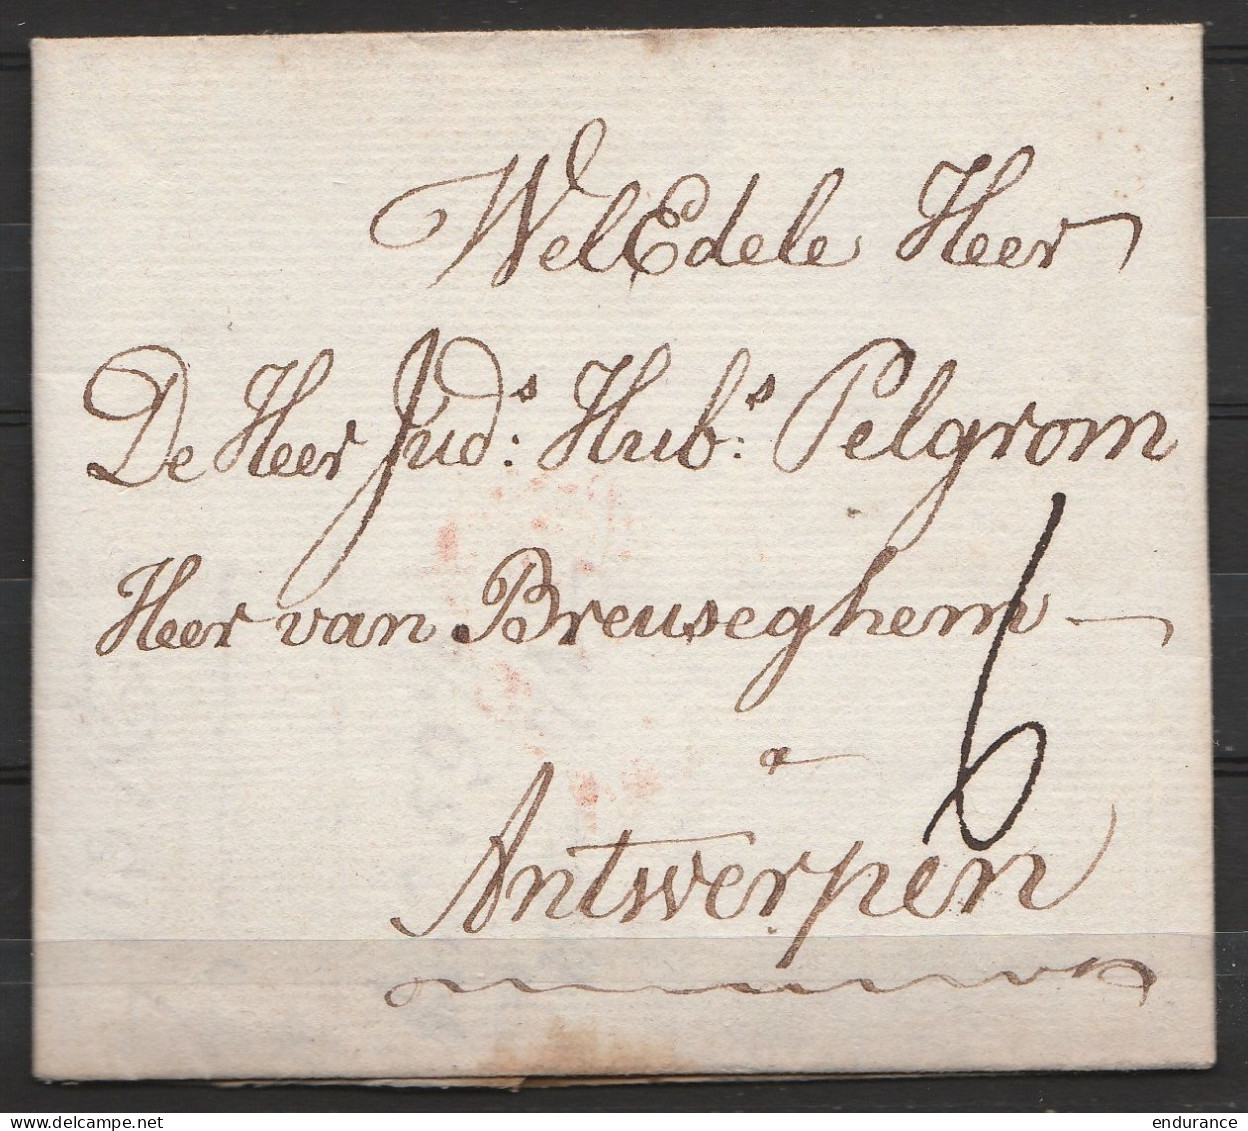 WelEdele Heer
De Heer Jud.s Hub.s Pelgrom
Heer van Breuseghem
a
6
Antwerpen
delcampe.net
endurance